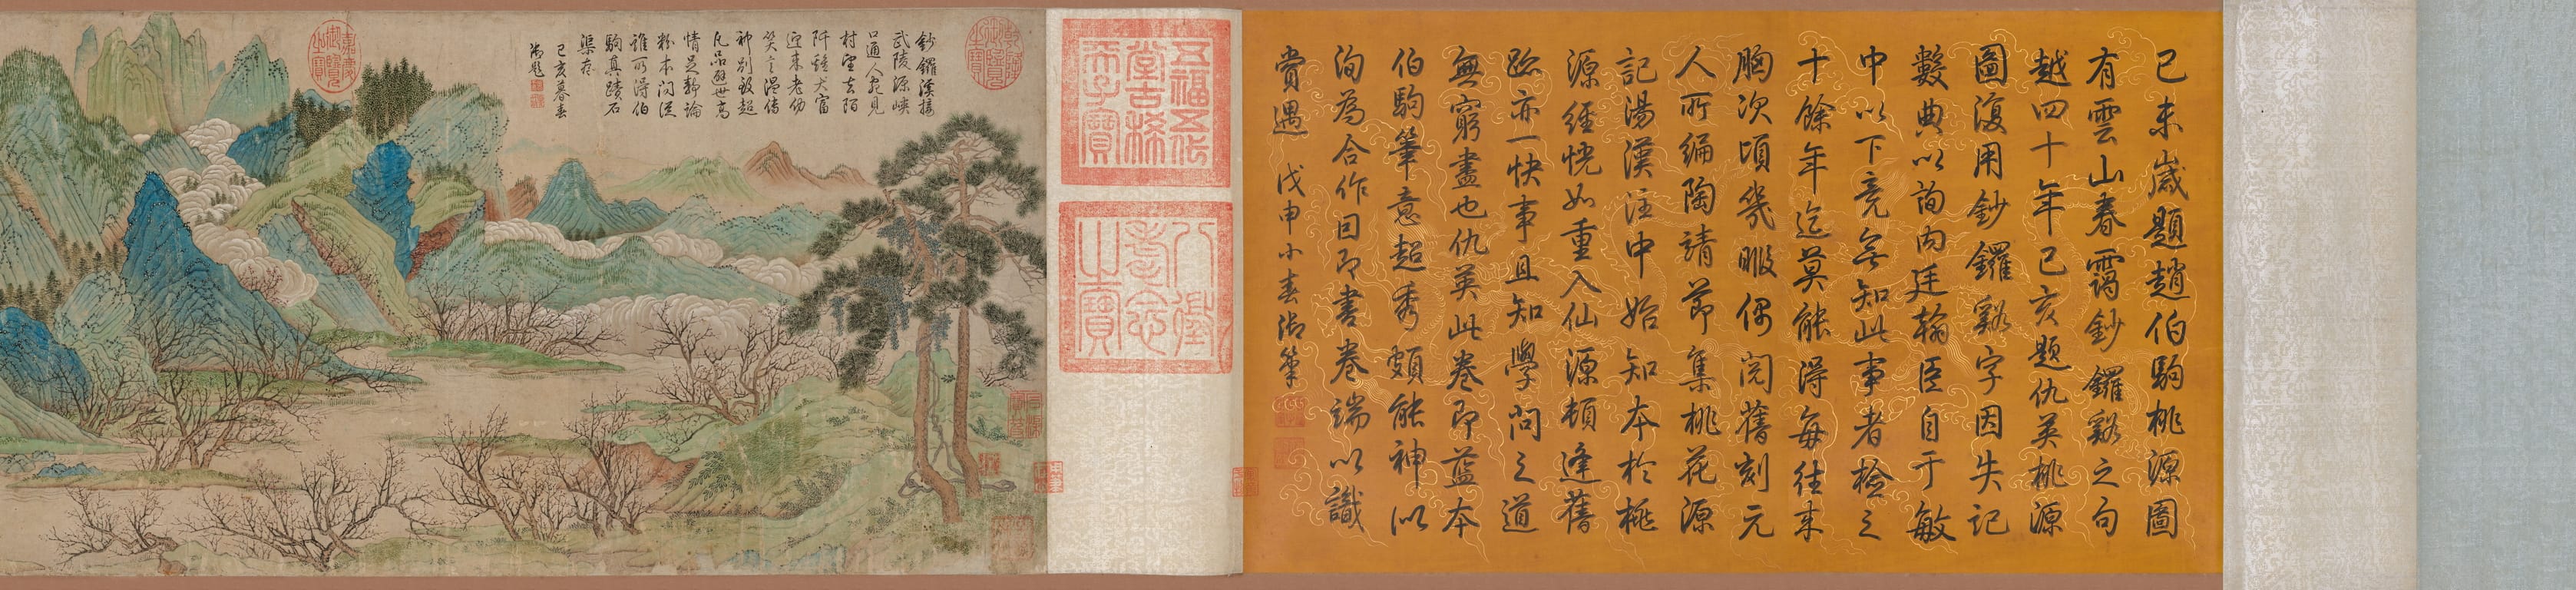 己未歲題趙伯駒桃源圖
有雲山春靄鈔鑼谿之句
越四十年己亥題仇英桃源
圖復用鈔鑼谿字因失記
數典以詢內廷翰臣自于敏
中以下竟無知此事者檢之
十餘年迄莫能得每往来
胸次頃幾暇偶閱舊刻元
人所編陶靖節集桃花源
記湯漢注中始知本於桃
源經恍如重入仙源頓逢舊
跡亦一快事且知學問之道
無窮盡也仇英此卷即藍本
伯駒筆意超秀頗能神似
洵為合作因即書卷端以識
賞遇
戊申小春御筆
五福五代
堂古稀
天子寶
八徵
耄念
之寶
鈔鑼溪接
武陵源峽
口通人宛見
村望去陌
阡雞犬富
迎来老幼
笑言溫傳
神別致超
凡品避世高
情足靜論
粉本問從
誰所得伯
駒真蹟石
渠存
己亥暮春
御題
嘉慶
御覽
之寶
乾隆
御覽
之寶